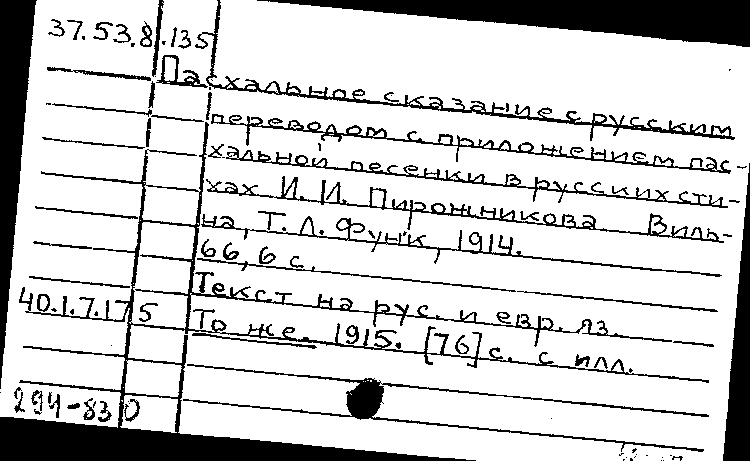 37.53.8.135
Пасхальное сказание с русским
переводом с приложением пас-
хальной песенки в русских сти-
хах И. И. Пирожникова Виль-
на, Т. Л. Функ, 1914.
66, 6 с.
Текст на рус. и евр. яз.
40.1.7.175 То же. 1915. [76] с. с илл.
294-830